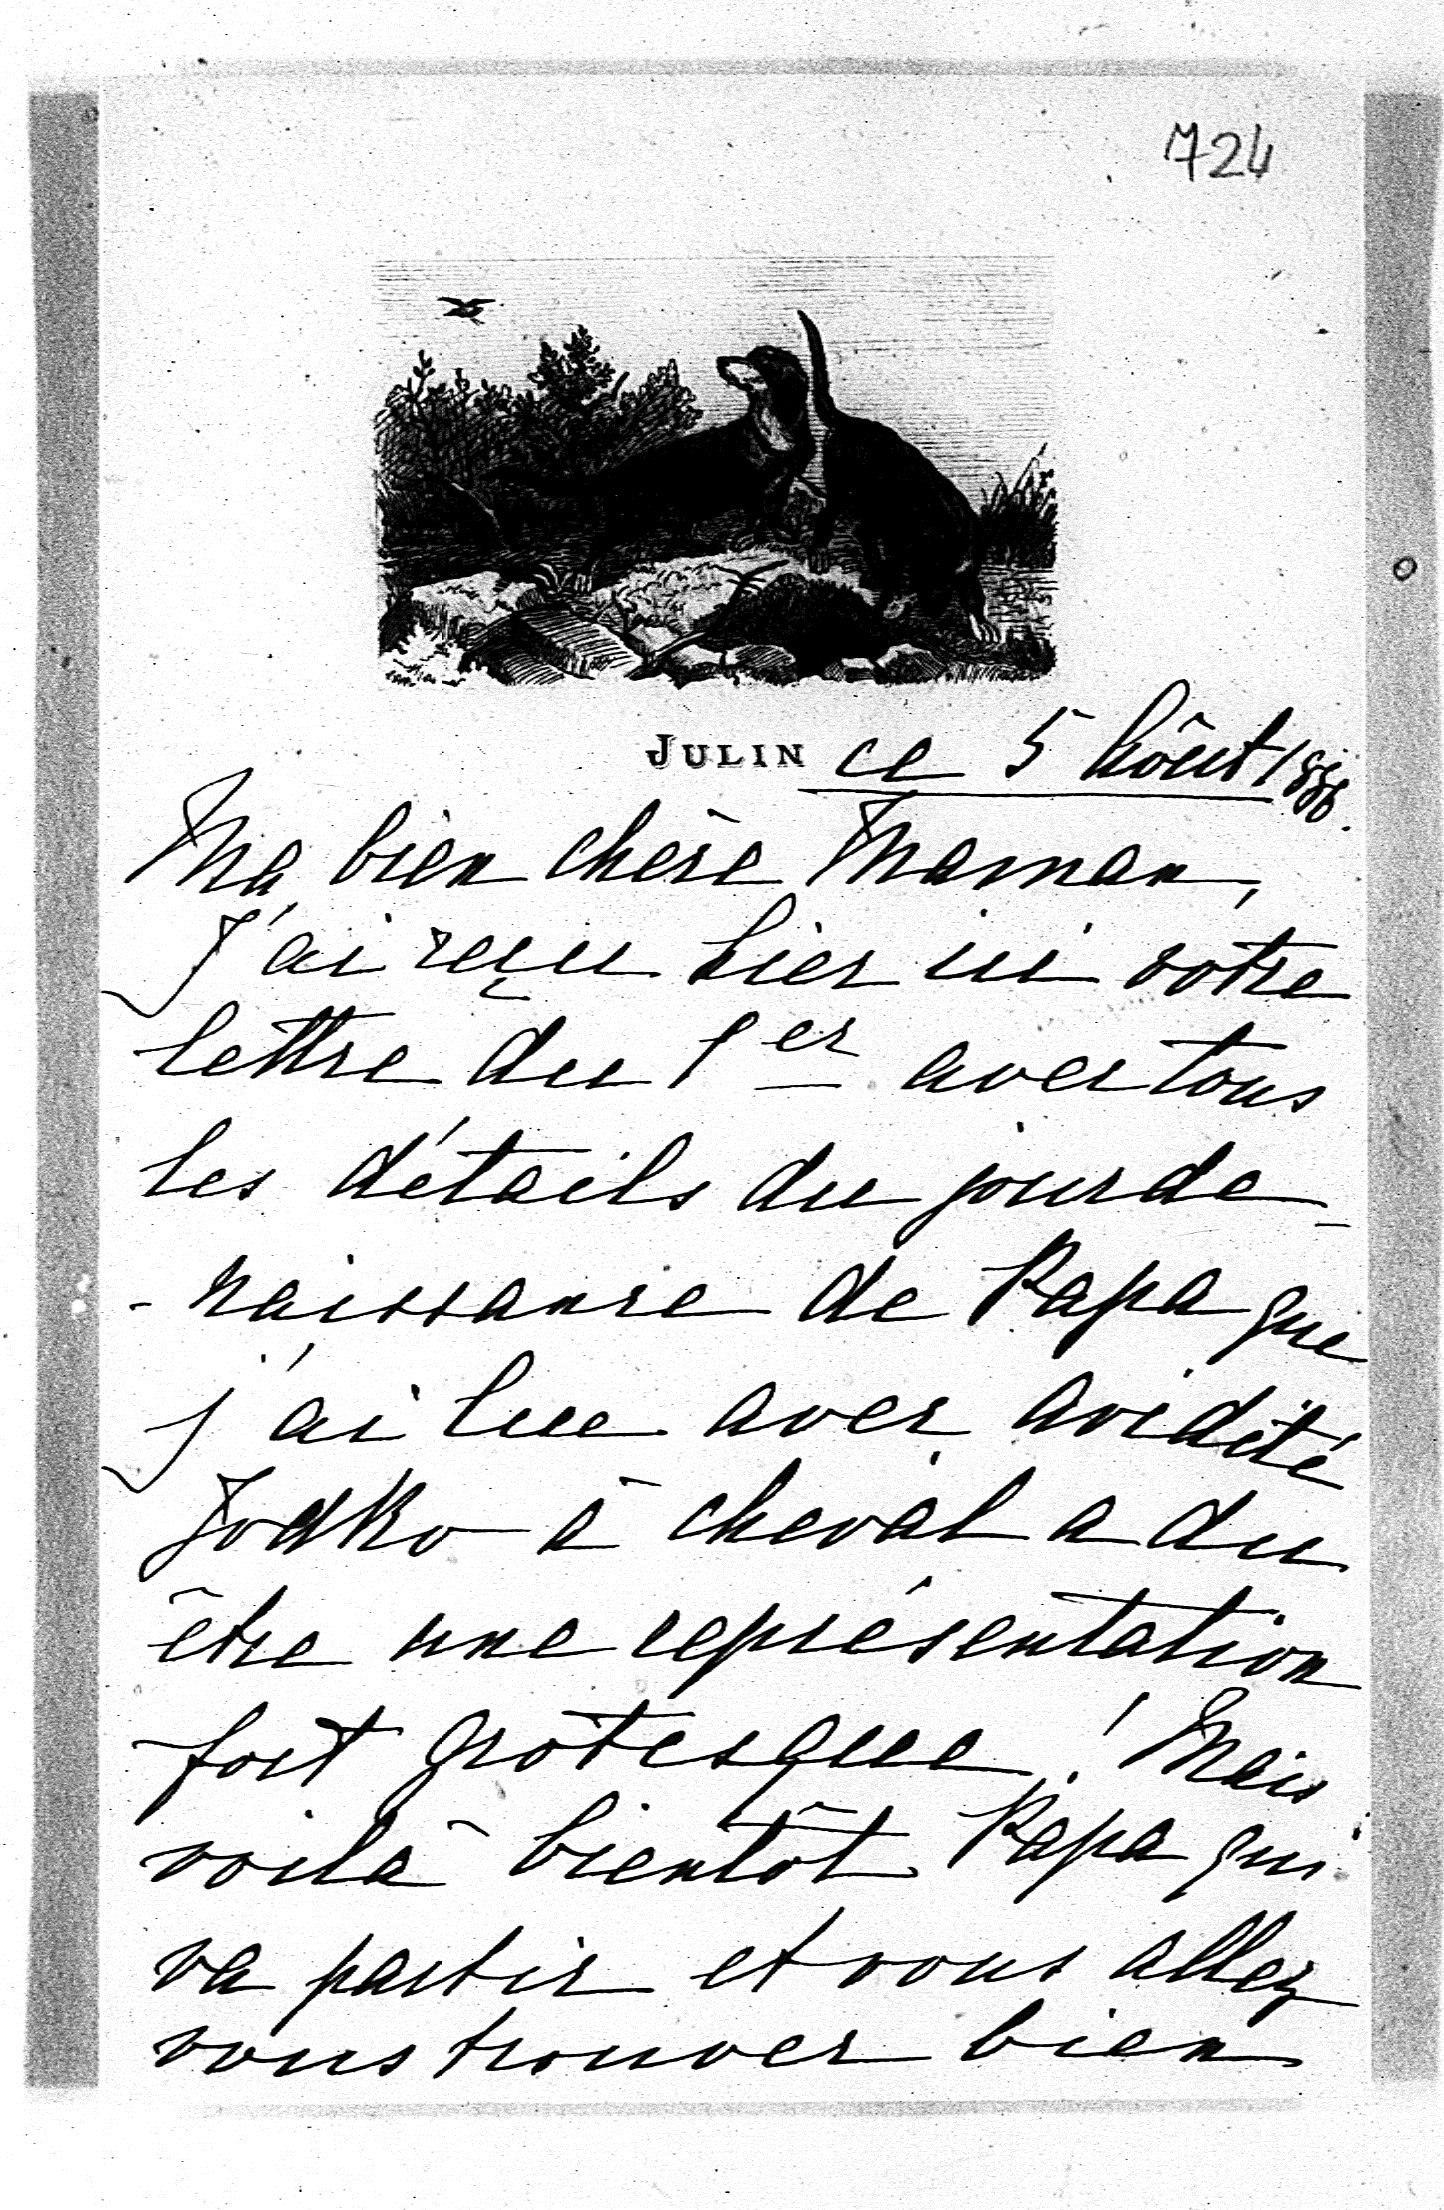 724
JULIN ce 5 Août 1886.
Ma bien chère Maman,
J'ai reçu hier ici votre
lettre du 1er avec tous
les détails du jour de
naissance de Papa que
j'ai lue avec avidité
Jodko à cheval a du
être une représentation
fort grotesque! Mais
voilà bientôt Papa qui
va partir et vous allez
vous trouver bien